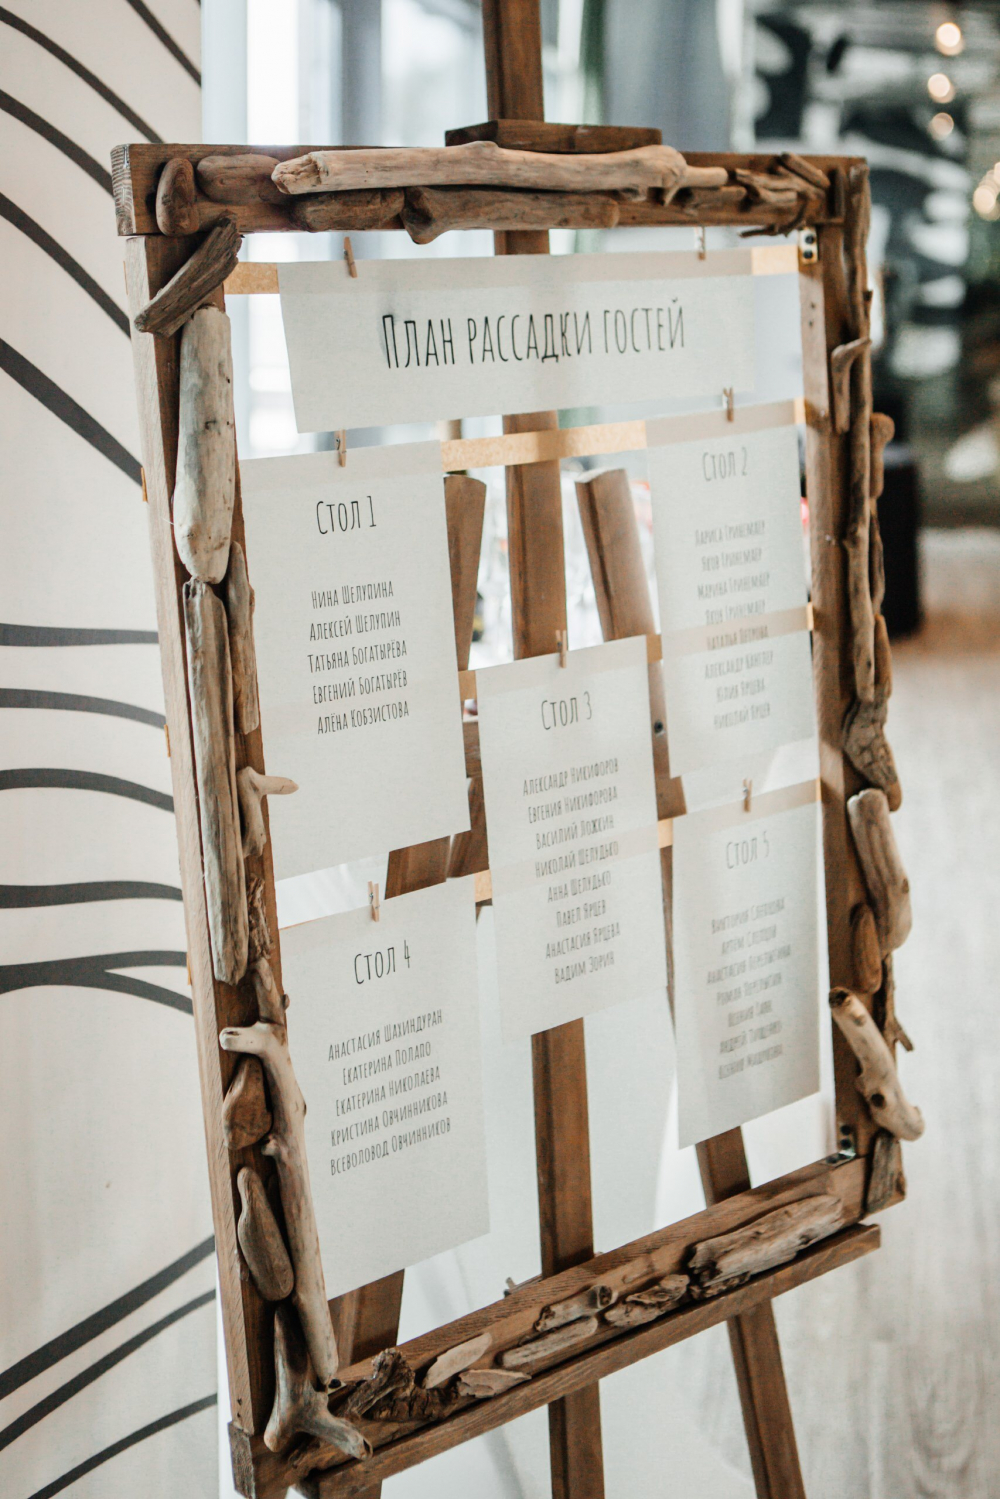 План рассадки гостей
Стол 1
Нина Шелупина
Алексей Шелупин
Татьяна Богатырёва
Евгений Богатырёв
Алёна Кобзистова
Стол 2
Лариса Гринемаер
Яков Гринемаер
Марина Гринемаер
Яков Гринемаер
Наталья Петрова
Александр Вакглер
Юлия Ярцева
Николай Ярцев
Стол 3
Александр Никифоров
Евгения Никифорова
Василий Ложкин
Николай Шелудько
Анна Шелудько
Павел Ярцев
Анастасия Ярцева
Вадим Зорин
Стол 4
Анастасия Шахиндуран
Екатерина Полапо
Екатерина Николаева
Кристина Овчинникова
Всеволовод Овчинников
Стол 5
Виктория Слепцова
Артем Слепцов
Анастасия Перепытина
Роман Перепытин
Ксения
Андрей Тищенко
Ксения